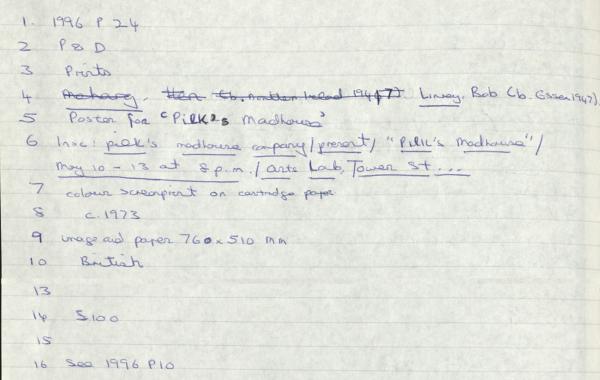 1. 1996 P 24
2 P & D
3 Prints
4 Linsey, Bob (b. Essex 1947).
5 Poster for 'Pilk's Madhouse'
6 Insc: pilk's madhouse company/present/ "Pilk's Madhouse"/
May 10 - 13 at 8 p.m./arts Lab, Tower St...
7 colour screenprint on cartridge paper
8 c. 1973
9 image and paper 760 x 510 mm
10 British
13
14 $100
15
16 See 1996 P10